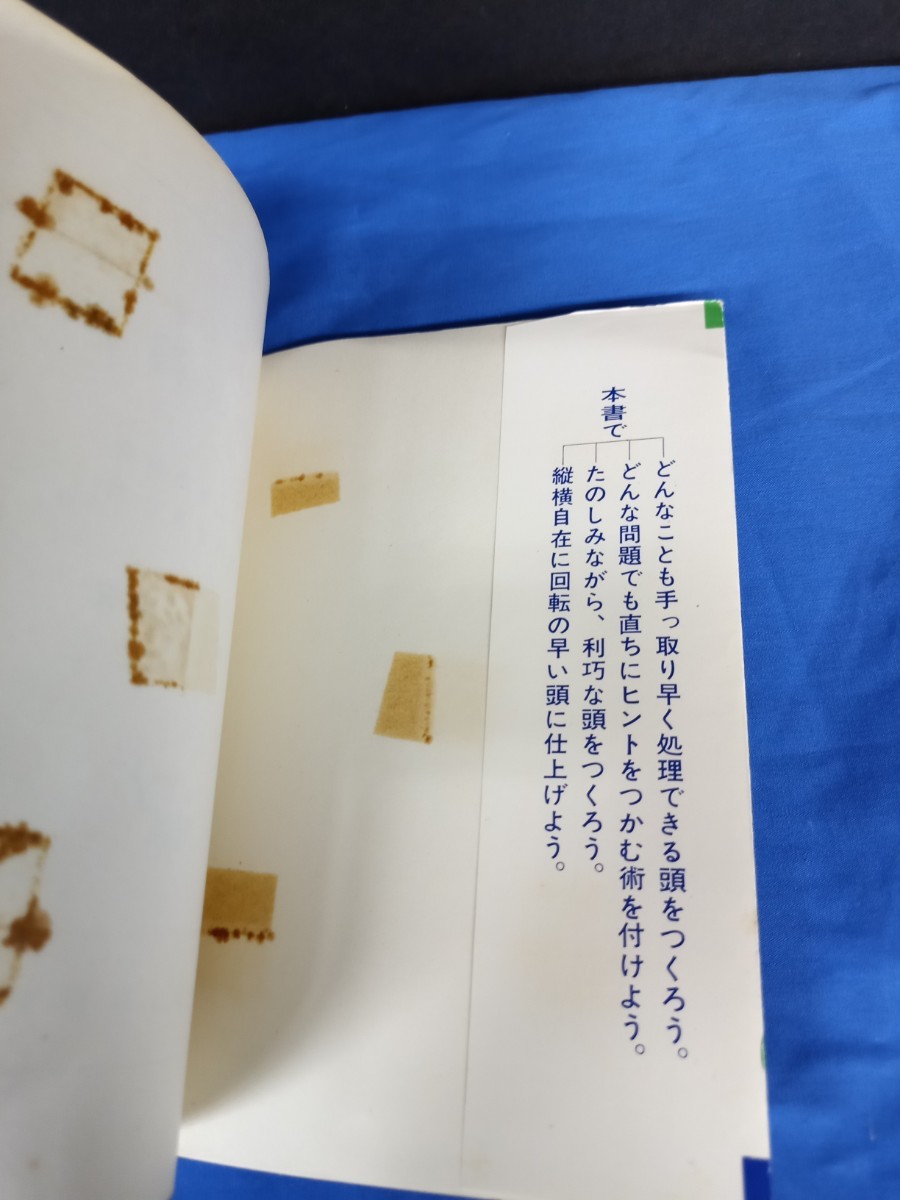 本書で
どんなことも手っ取り早く処理できる頭をつくろう。
どんな問題でも直ちにヒントをつかむ術を付けよう。
たのしみながら、利巧な頭をつくろう。
縦横自在に回転の早い頭に仕上げよう。